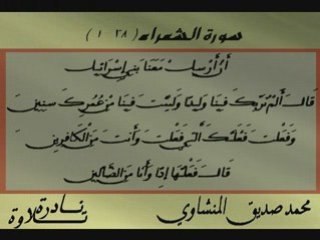 سورة الشعراء (٢٨ - ١)
أن أرسل معنا بني إسرائيل
قال ألم نربك فينا وليدا ولبثت فينا من عمرك سنين
وفعلت فعلتك التي فعلت وأنت من الكافرين
قال فعلتها إذا وأنا من الضالين
محمد صديق المنشاوي
نادرة
تلاوة